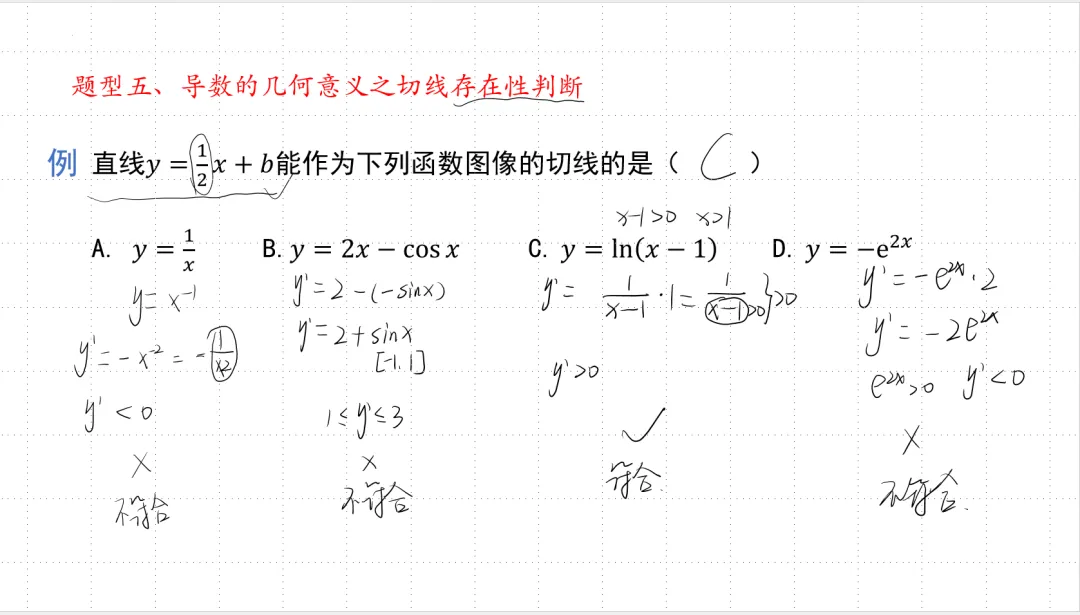 题型五、导数的几何意义之切线存在性判断
例 直线y = 1/2 x + b能作为下列函数图像的切线的是（ C ）
x-1>0 x>1
A. y = 1/x B. y = 2x − cos x C. y = ln(x − 1) D. y = −e^{2x}
y = x^{-1}
y' = -x^{-2} = -1/x^2
y' < 0
×
不符合
y' = 2-(-sinx)
y' = 2+sinx
[-1,1]
1 ≤ y' ≤ 3
×
不符合
y' = 1/(x-1) · 1 = 1/(x-1) >0 } >0
y' > 0
✓
符合.
y' = -e^{2x} · 2
y' = -2e^{2x}
e^{2x} > 0 y' < 0
×
不符合.